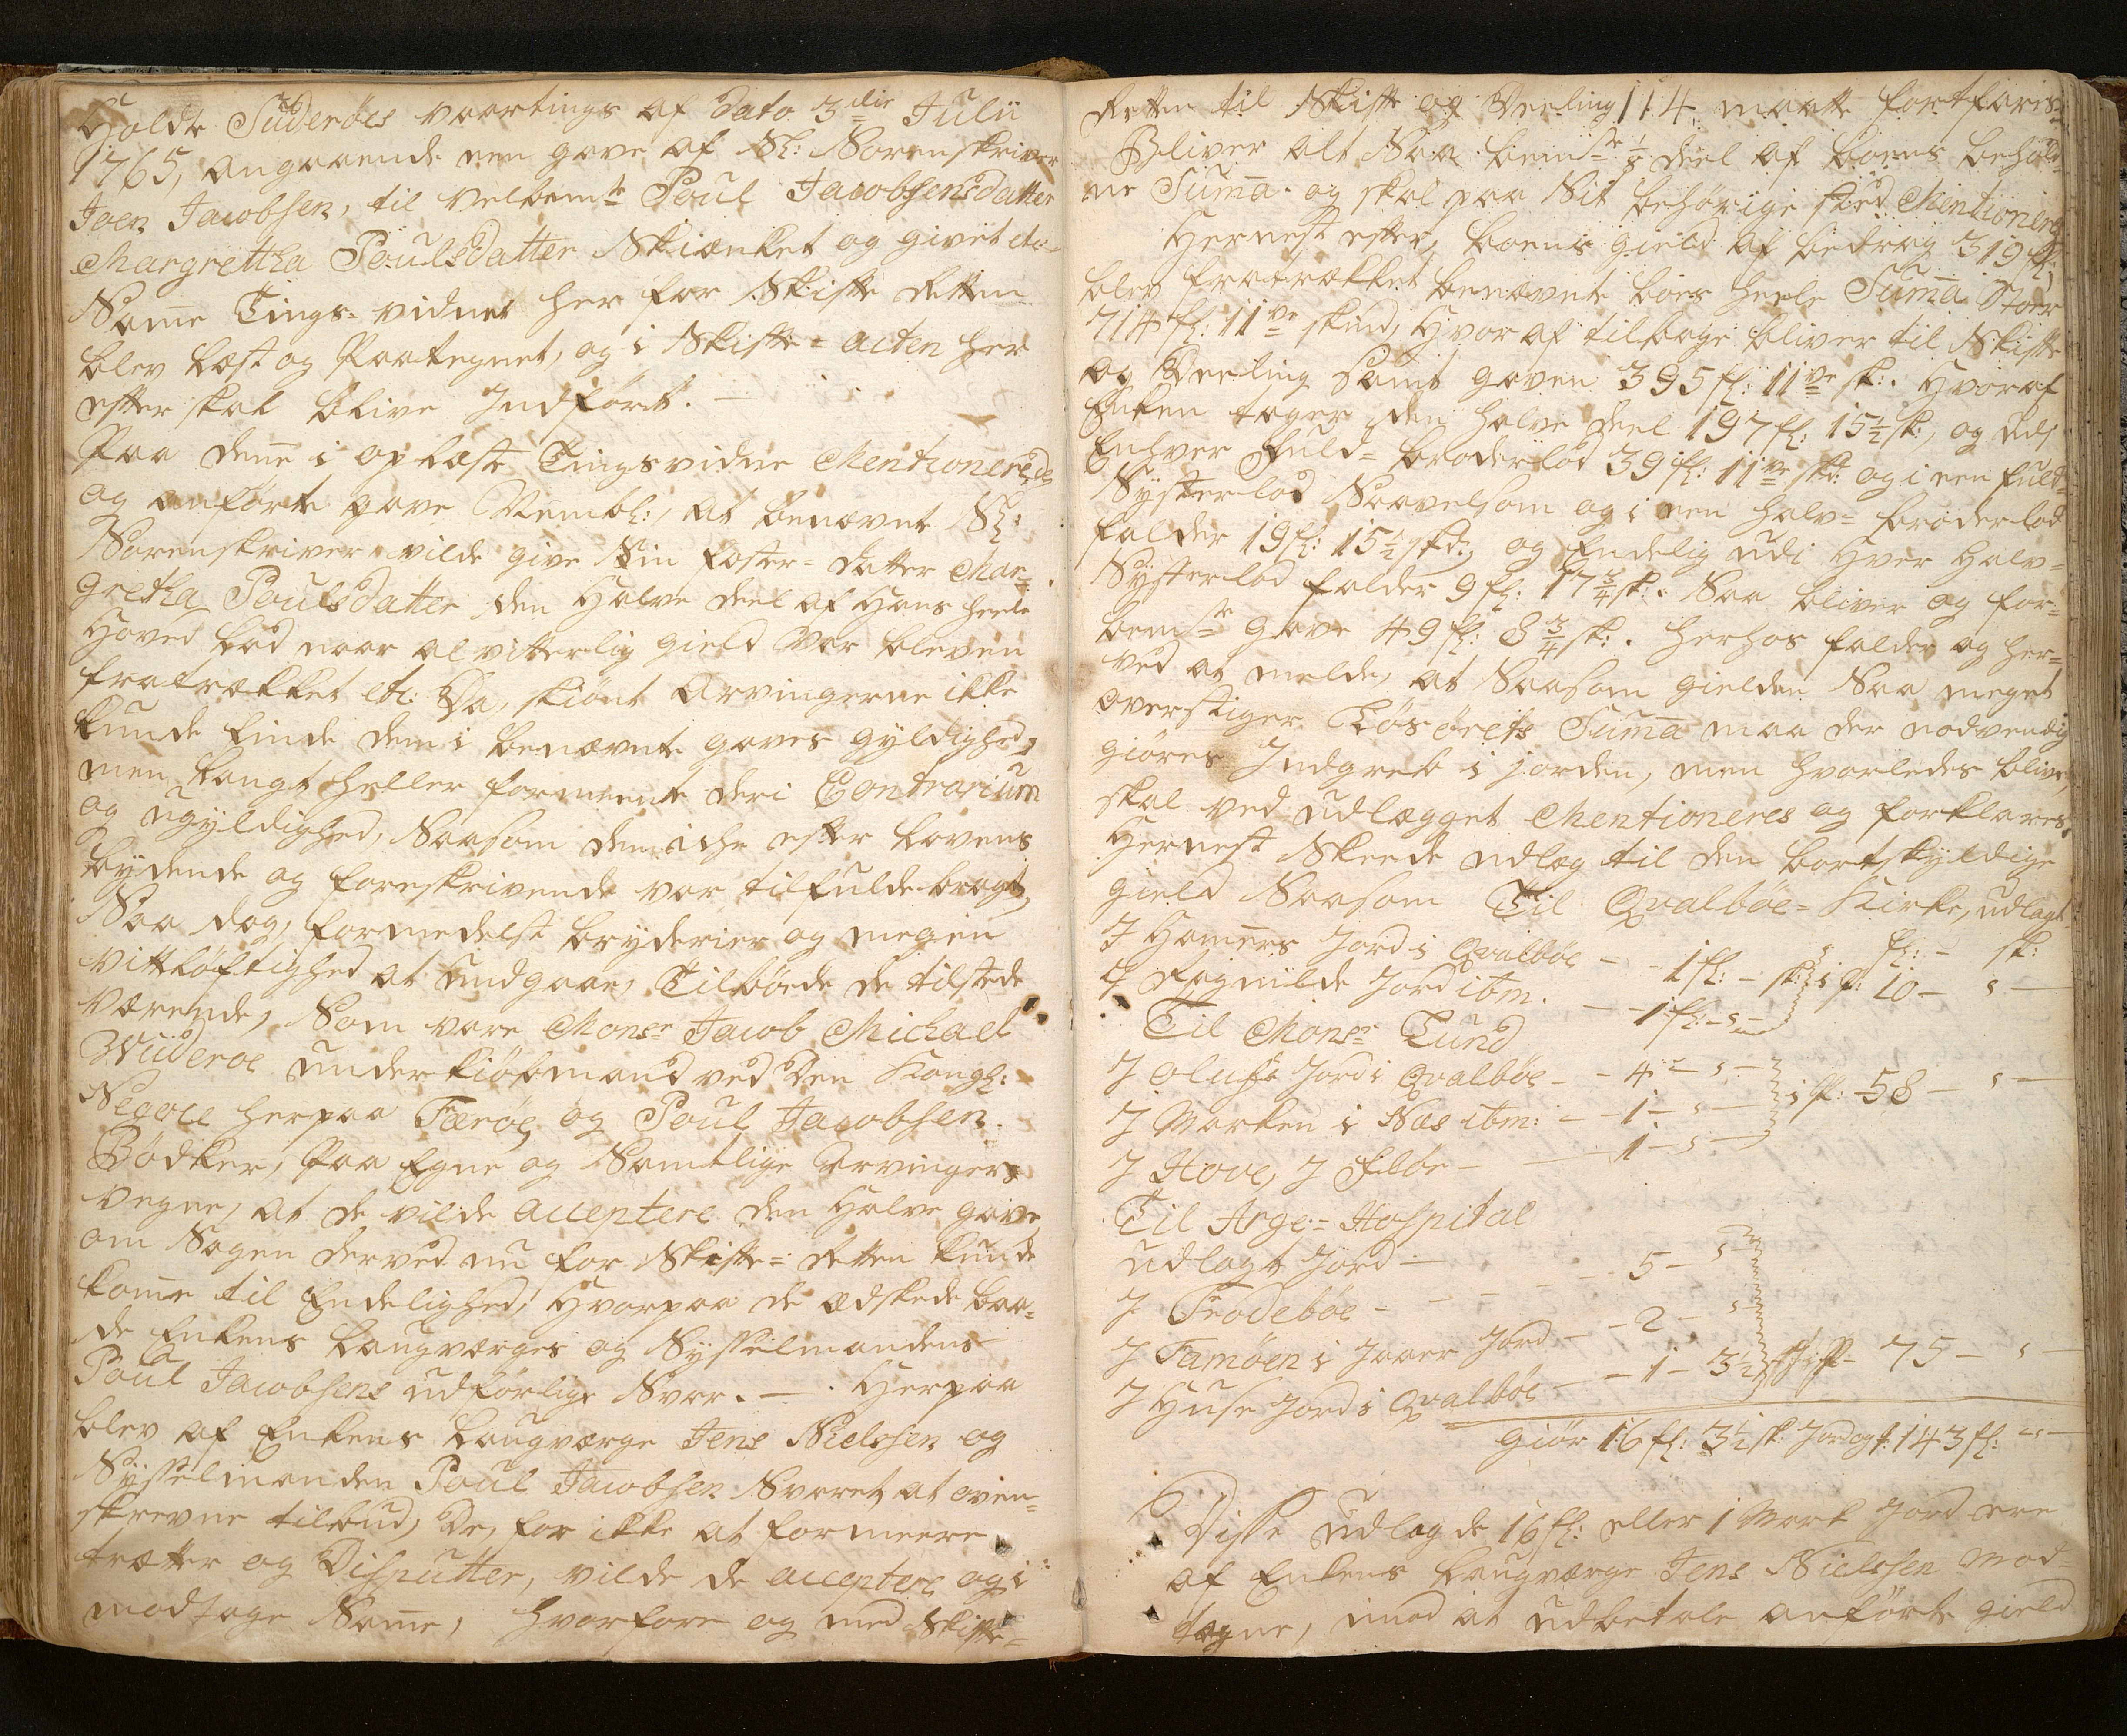 Holdte Suderöes vaartings af dato 3die Julii
1765, angaaende een gave af Sl: Sorenskriver
Joen Jacobsen, til velbemte Poul Jacobsens datter
Margretha Poulsdatter Skienket og givet etc
Same Tings-vidne her for Skifte Retten
blev læst og Paategnet, og i Skifte-acten her
efter skal blive Indført. —
Paa denne i oplæste Tingsvidne Mentionerede
og anförte gave Reembl:, at benævnt Sl:
Sorenskriver vilde give Sin foster-datter Mar-
gretha Poulsdatter den Halve deel af Hans heele
Hoved Lod naar al vitterlig gield var bleven
fratrækket etc: Da, skiönt Arvingerne ikke
kunde finde dem i benævnte gaves gyldighed,
men langt heller formeente deri Contrarium
og ugyldighed, Saasom den iche efter Lovens
bydende og foreskrivende var tilfulde bragt,
Saa dog, formedelst bryderier og megen
vittløftighed at undgaae, Tilböede de tilstede
værende, Som vare Monsr Jacob Michael
Wideroe underkiöbmand ved den Kongl:
Negoce herpaa Færöe og Poul Jacobsen
Bödker, Paa Egne og Samtlige Arvingers
vegne, at de vilde acceptere den Halve gave
om Sagen derved nu for Skifte-Retten kunde
komme til Endelighed; Hvorpaa de ædskede baa-
de Enkens Laugværges og Sysselmandens
Poul Jacobsens udførlige Svar. — Herpaa
blev af Enkens Laugværge Jens Nielssen og
Sysselmanden Poul Jacobsen Svaret, at oven-
skrevne tilbud, De, for ikke at formeere
trætter og Disputter, vilde de acceptere og i
modtage Same, hvorfore og med Skifte-
Retten til Skifte og Deeling 114 maatte fortfares
Bliver alt Saa bemte 1/8 deel af boens behold-
ne Suma og skal paa Sit behørige sted Mentioneres
Hernest efter, boens gield af bedrag 319 fl:
blev fratrækket benævnte boes heele Suma Stoer
714 fl: 11ve skind, Hvor af tilbage bliver til Skifte
og Deeling samt gaven 395 fl: 11ve sk:. Hvoraf
Enken tager den halve deel 197 fl: 15½ sk:, og udi
Enhver Fuld-broderlod 39 fl: 11ve skd: og i een fuld-
Systerlod Saavelsom og i een halv-broderlod
falder 19 fl: 15½ skd:, og Endelig udi Hver halv-
Systerlod falder 9 fl: 17¾ sk:. Saa bliver og for-
bemte gave 49 fl: 8¾ sk:. Herhos falder og her-
ved at melde, at Saasom gielden Saa meget
overstiger Lösörets Suma maa der nødvendig
giöres Indgreb i jorden, men hvorledes blive,
skal ved udlægget Mentioneres og forklares.
Hernest Skeede udlæg til den bortskyldige
gield Saasom Til Qvalböe-Kirke, udlagt
I Hamers Jord i Qvalböe - - 1 fl: - sk:
I Ragnilde Jord ibm. - - 1 fl: - s - is fl: 10 - s -
Til Monsr Lund
I Olufs Jord i Qvalböe - - 4 - s -
I Marken i Næs ibm: - - 1 - s - is fl: 58 - s -
I Hove, I Tilöe - - 1 - s -
Til Arge-Hospital
udlagt Jord - 5 - s
I Frodeböe - - 2 - s
I Famöen i Jaaer Jord
I Huse Jord i Qvalböe - - 1 - 3½ is fl: 75 - s -
giör 16 fl: 3½ sk: Jord og f: 143 fl: - s -
Disse udlagde 16 fl: eller 1 Mark Jord ere
af Enkens Laugværge Jens Nielssen mod-
tagne, imod at udbetale anførte gield